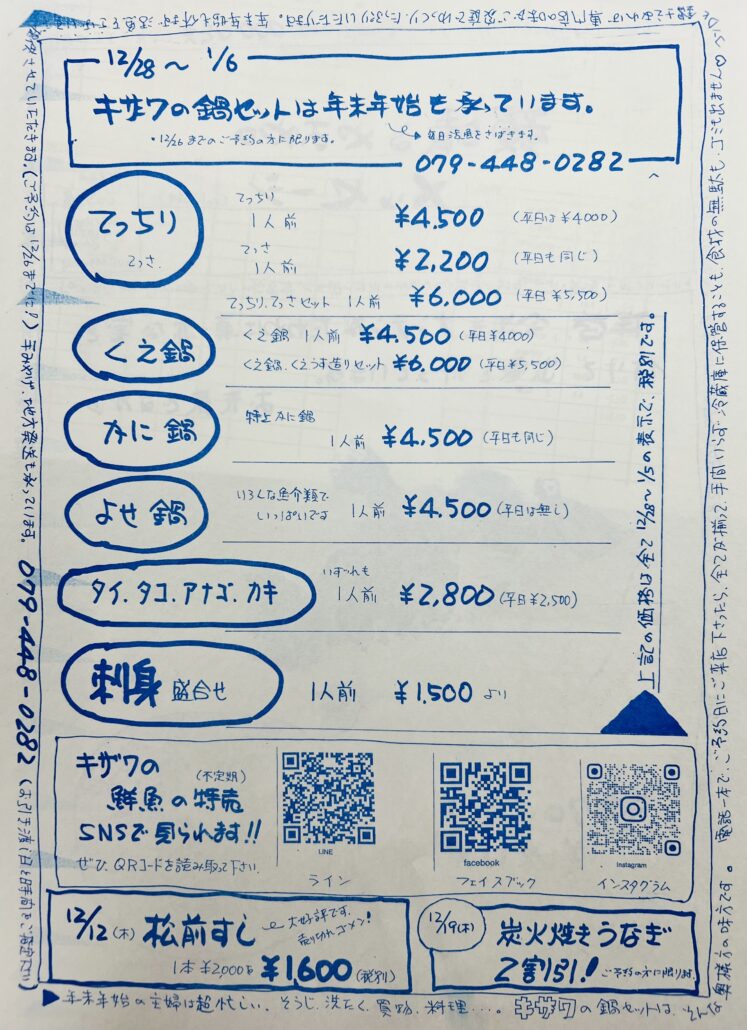 12/28〜1/6
キザワの鍋セットは年末年始も承っています。
*12/26までのご予約の方に限ります。
毎日活魚をさばきます。
079-448-0282
てっちり
てっさ
てっちり
1人前 ¥4,500 (平日は¥4000)
てっさ
1人前 ¥2,200 (平日も同じ)
てっちり、てっさセット 1人前 ¥6,000 (平日¥5,500)
くえ鍋
くえ鍋 1人前 ¥4.500 (平日¥4000)
くえ鍋、くえうす造りセット ¥6,000 (平日¥5,500)
かに鍋
特上かに鍋
1人前 ¥4,500 (平日も同じ)
よせ鍋
いろんな魚介類で
いっぱいです
1人前 ¥4,500 (平日は無し)
タイ.タコ.アナゴ.カキ
いずれも
1人前 ¥2,800 (平日¥2,500)
刺身 盛合せ
1人前 ¥1,500 より
上記の価格は全て12/28〜1/5の表示で、税別です。
キザワの
(不定期)
鮮魚の特売
SNSで見られます!!
ぜひ、QRコードを読み取って下さい。
LINE
ライン
facebook
フェイスブック
Instagram
インスタグラム
12/12(木) 松前すし
大好評です。
売り切れゴメン!
1本¥2,000を ¥1,600 (税別)
12/19(木)
炭火焼きうなぎ
2割引!
ご予約の方に限ります。
▶年末年始の主婦は超忙しい。そうじ、洗たく、買物、料理・・・。キザワの鍋セットは、そんな
奥様方の味方です。電話一本で、ご予約日にご来店下さったら、全てが揃って、手間いらず。冷蔵庫に保管することも、食材の無駄も、ゴミも出ません♡
させていただきます。(ご予約は12/26までに!)手みやげ、地方発送も承っています。079-448-0282